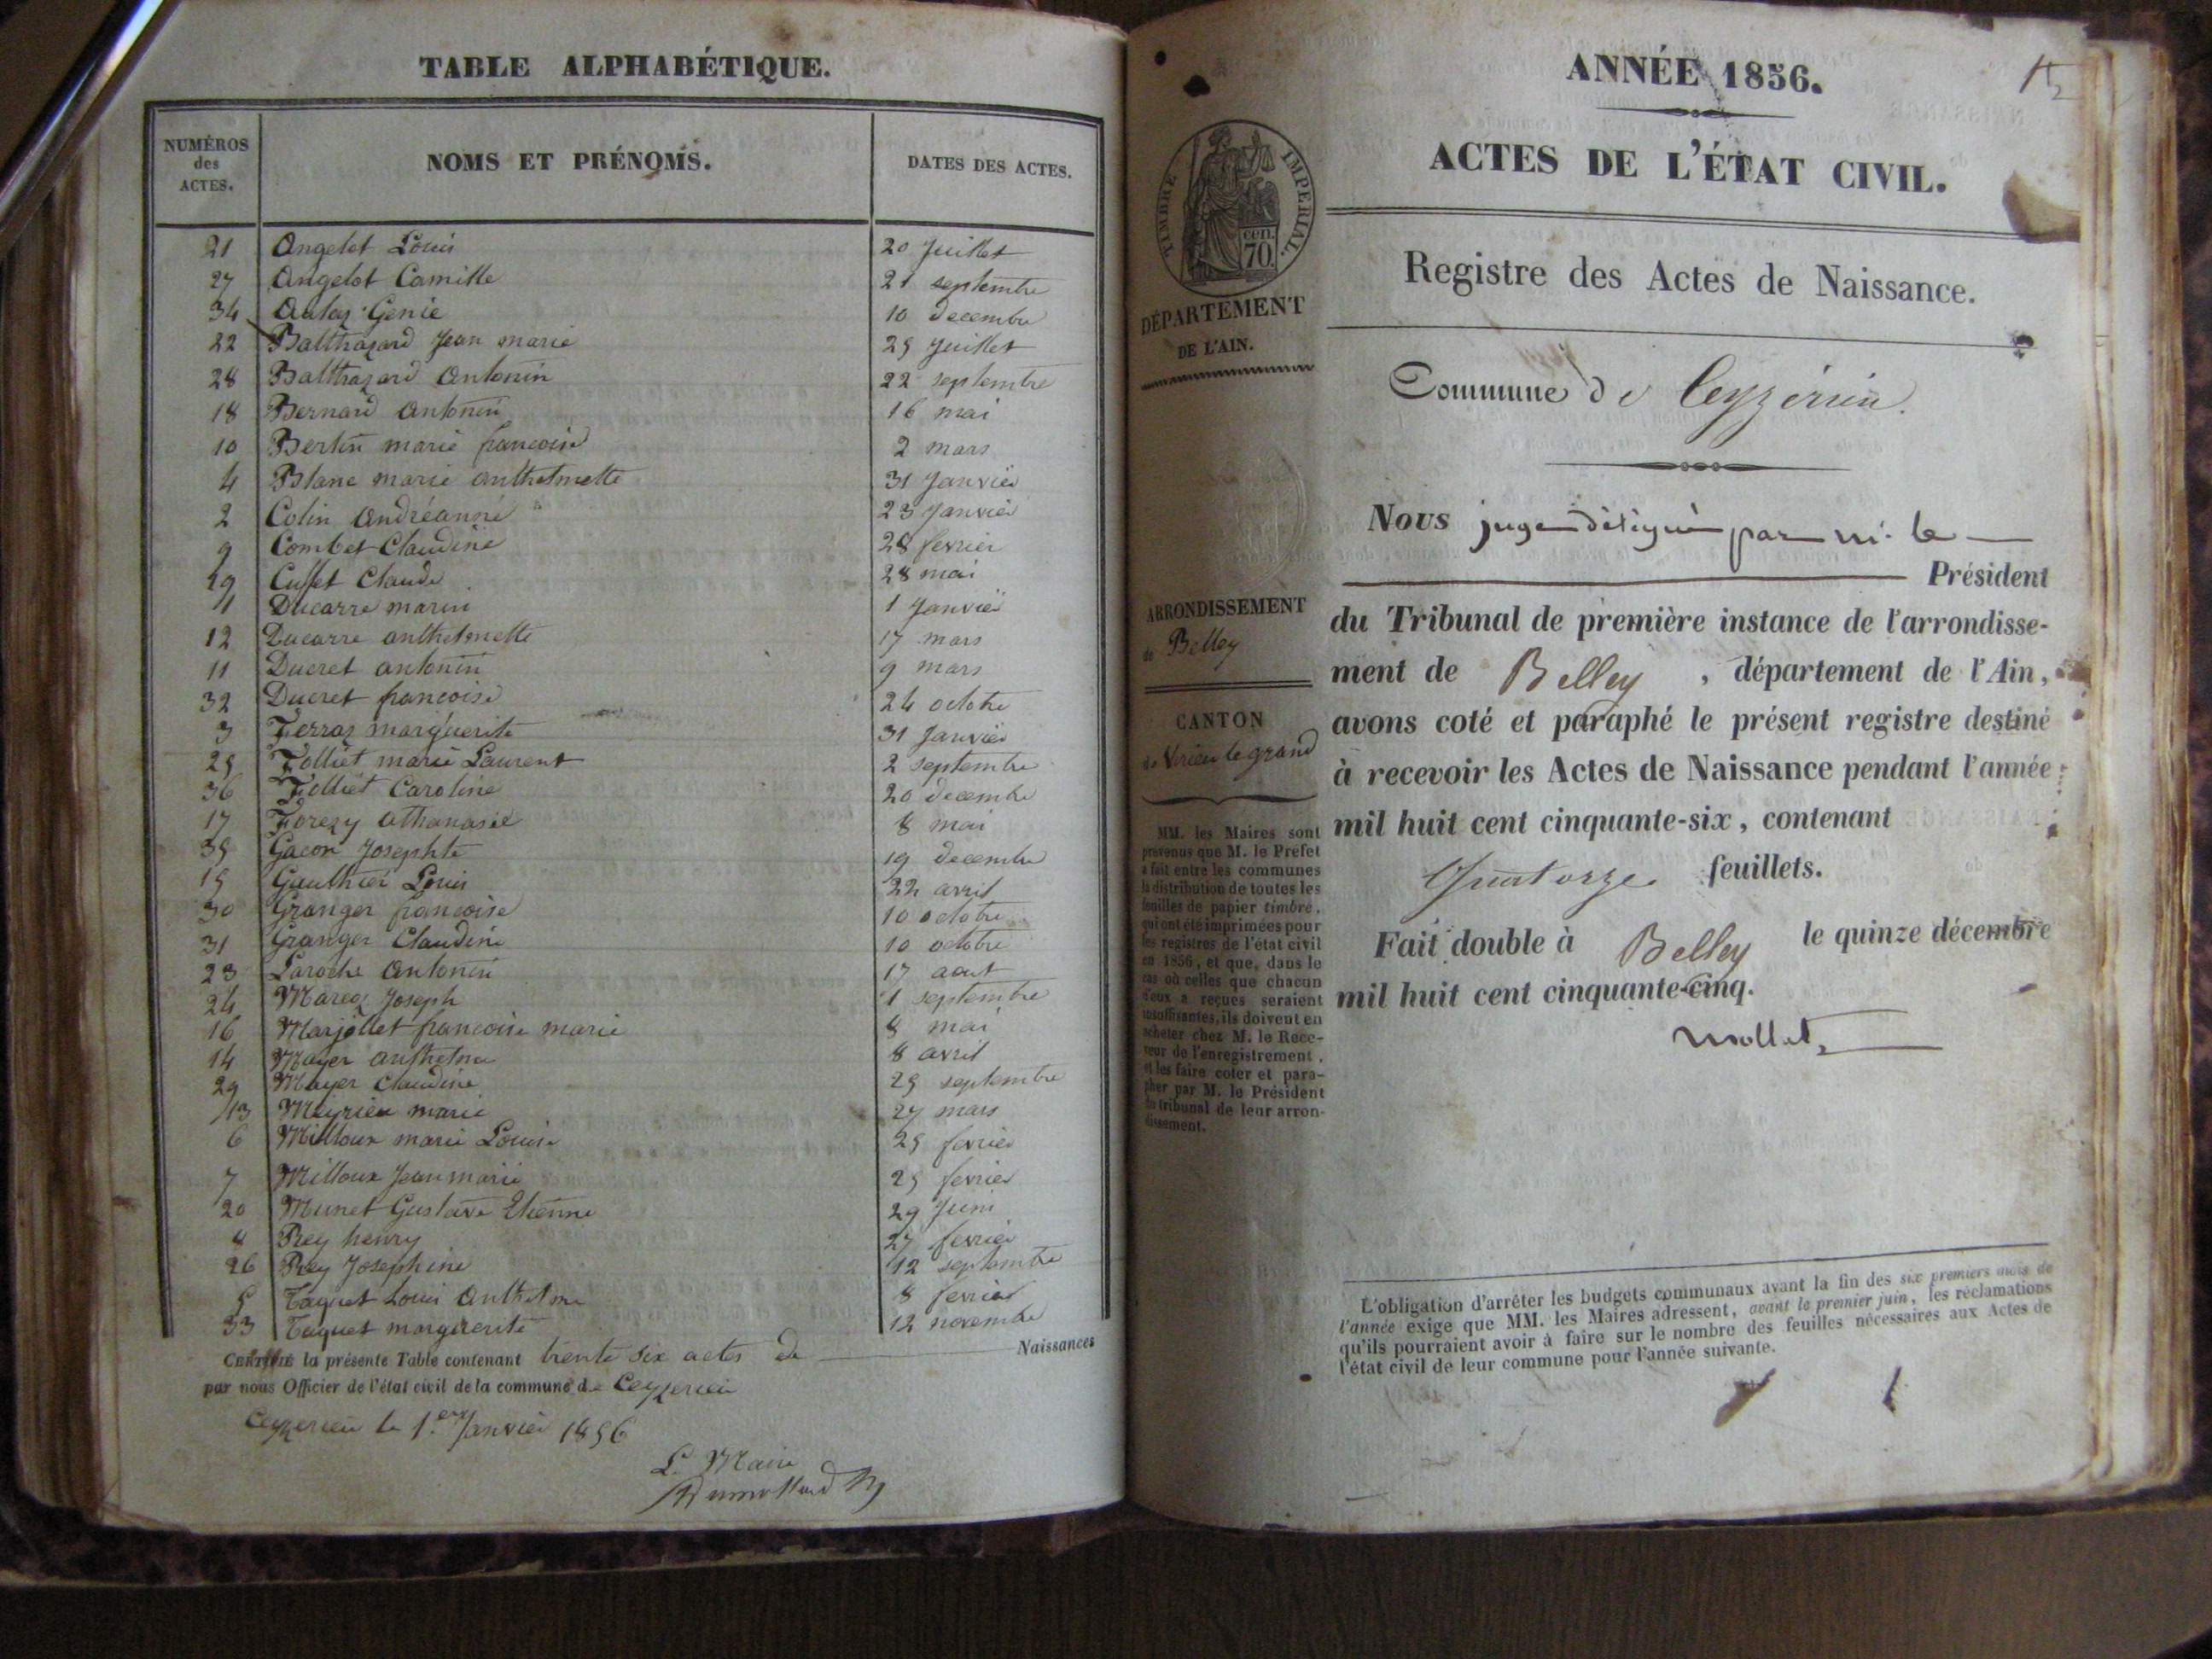 TABLE ALPHABÉTIQUE.
NUMÉROS des ACTES.
NOMS ET PRÉNOMS.
DATES DES ACTES.
21 Angelot Louis 20 Juillet
27 Angelot Camille 21 septembre
34 Genie 10 decembre
22 Balthazard Jean marie 25 Juillet
28 Balthazard Antonin 22 septembre
18 Bernard Antonin 16 mai
10 Bertin marie francoise 2 mars
4 Blanc marie anthelmette 31 Janvier
2 Colin Andréanne 23 Janvier
9 Combet Claudine 28 fevrier
19 Cusset Claude 28 mai
1 Ducarre marin 1 Janvier
12 Ducarre anthelmette 17 mars
11 Ducret antonin 9 mars
32 Ducret francoise 24 octobre
3 Ferraz marguerite 31 Janvier
25 Folliet marie Laurent 2 septembre
36 Folliet Caroline 20 decembre
17 Forezy athanasie 8 mai
35 Gacon Josephte 19 decembre
15 Gauthier Louis 22 avril
30 Granger francoise 10 octobre
31 Granger Claudine 10 octobre
23 Laroche Antonin 17 aout
24 Marcoz Joseph 1 septembre
16 Marjollet francoise marie 8 mai
14 Mayer anthelme 8 avril
29 Mayer Claudine 25 septembre
13 Meyrieu marie 27 mars
6 Milloux marie Louise 25 fevrier
7 Milloux Jean marie 25 fevrier
20 Munet Gustave Etienne 29 Juin
8 Rey henry 27 fevrier
26 Rey Josephine 12 septembre
5 Taguet Louis Anthelme 8 fevrier
33 Taguet marguerite 12 novembre
CERTIFIÉ la présente Table contenant trente six actes de Naissances
par nous Officier de l'état civil de la commune de Ceyzerieu
Ceyzerieu le 1.er Janvier 1856
L. Maire
Dumollard
ANNÉE 1856.
ACTES DE L'ÉTAT CIVIL.
TIMBRE IMPERIAL.
cen. 70
Registre des Actes de Naissance.
DÉPARTEMENT
DE L'AIN.
Commune de Ceyzérieu.
Nous juge désigné par m. le
Président
ARRONDISSEMENT
de Belley
du Tribunal de première instance de l'arrondisse-
ment de Belley, département de l'Ain,
CANTON
de Virieu le grand
avons coté et paraphé le présent registre destiné
à recevoir les Actes de Naissance pendant l'année
mil huit cent cinquante-six, contenant
Quatorze feuillets.
Fait double à Belley le quinze décembre
mil huit cent cinquante-cinq.
Mollet
MM. les Maires sont
prévenus que M. le Préfet
a fait entre les communes
la distribution de toutes les
feuilles de papier timbré,
qui ont été imprimées pour
les registres de l'état civil
en 1856, et que, dans le
cas où celles que chacun
d'eux a reçues seraient
insuffisantes, ils doivent en
acheter chez M. le Rece-
veur de l'enregistrement,
et les faire coter et para-
pher par M. le Président
du tribunal de leur arron-
dissement.
L'obligation d'arrêter les budgets communaux avant la fin des six premiers mois de
l'année exige que MM. les Maires adressent, avant le premier juin, les réclamations
qu'ils pourraient avoir à faire sur le nombre des feuilles nécessaires aux Actes de
l'état civil de leur commune pour l'année suivante.